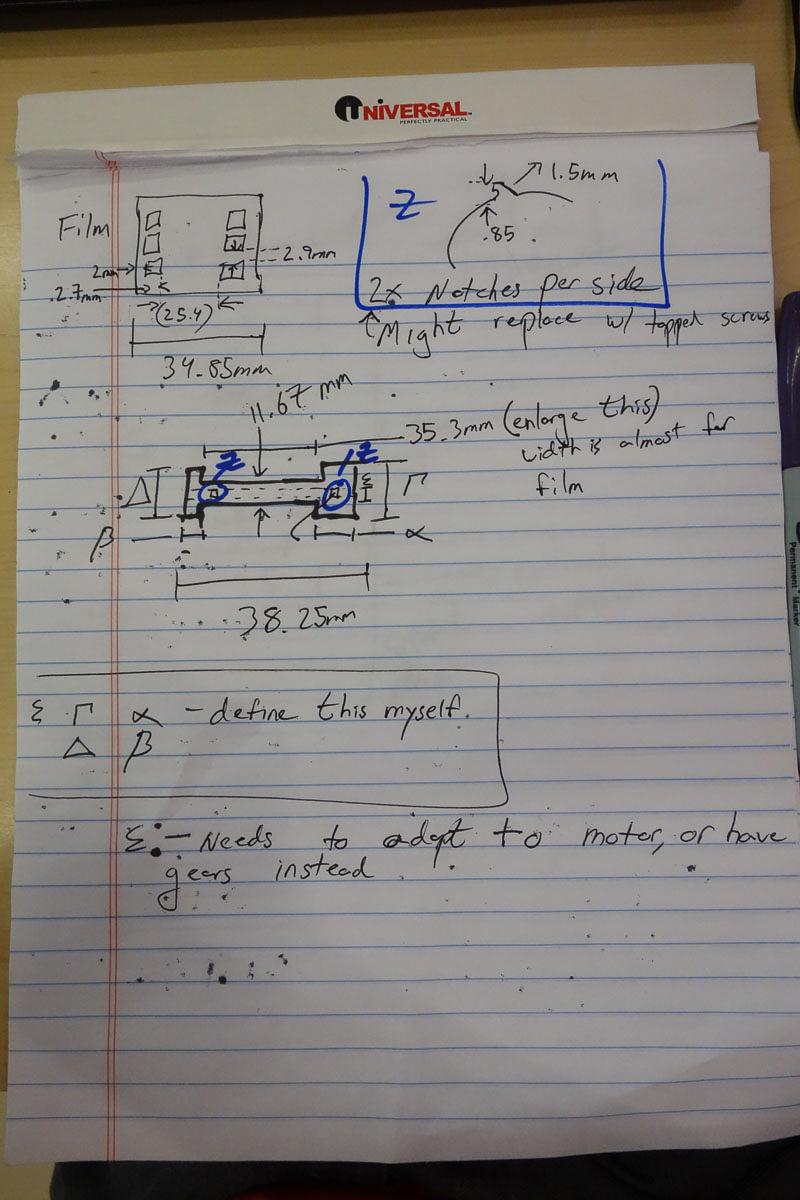 UNIVERSAL
PERFECTLY PRACTICAL
Film
2mm
.2.7mm
2.9mm
(25.4)
34.85mm
Z
1.5mm
.85
2x Notches per side
↑Might replace w/ tapped screws
11.67 mm
35.3mm (enlarge this)
width is almost for
film
Z
Z
Δ
ξ
Γ
β
α
38.25mm
ξ Γ α - define this myself.
Δ β
Σ:- Needs to adapt to motor, or have
gears instead.
Permanent Marker